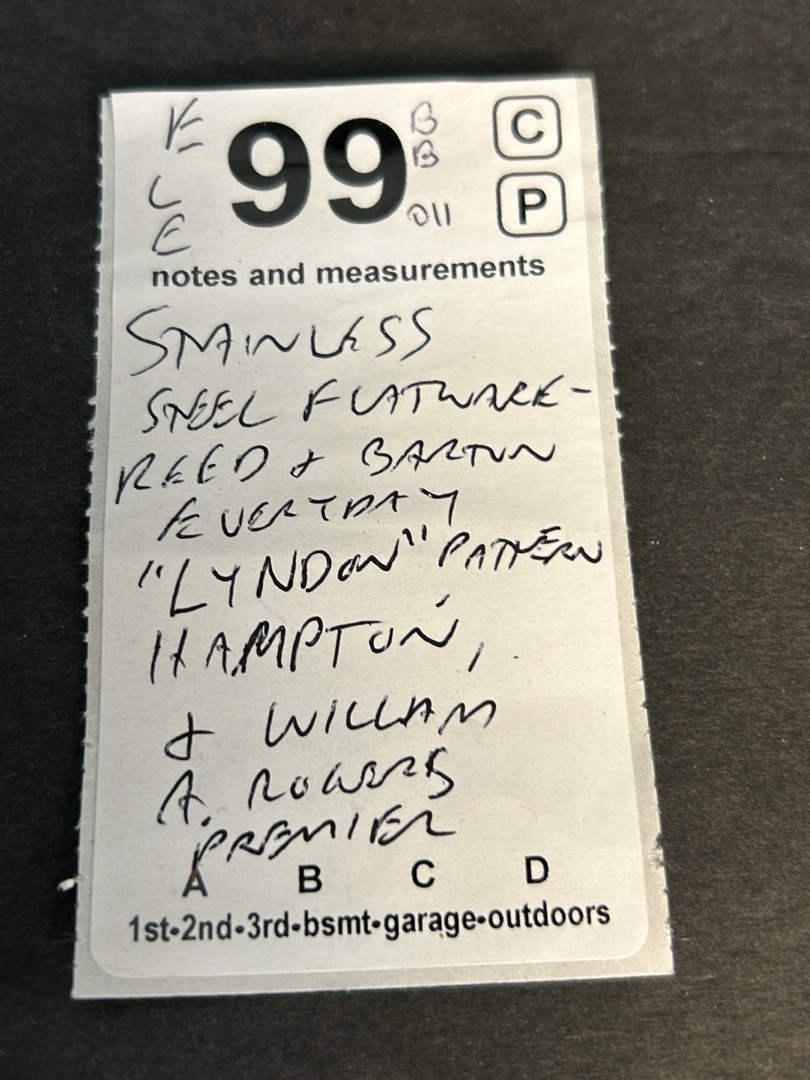 E 99 B C
L B P
E 011
notes and measurements
STAINLESS
STEEL FLATWARE-
REED & BARTON
EVERYDAY
"LYNDON" PATTERN
HAMPTON,
& WILLIAM
A. ROGERS
PREMIER
A B C D
1st•2nd•3rd•bsmt•garage•outdoors